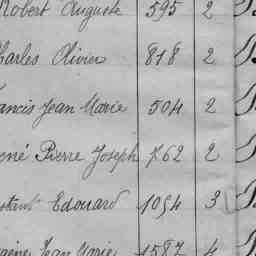 Robert Auguste 595 2
Charles Olivier 818 2
Francis Jean Marie 504 2
René Pierre Joseph 762 2
Constant Edouard 1094 3
Eugène Jean Marie 1587 4